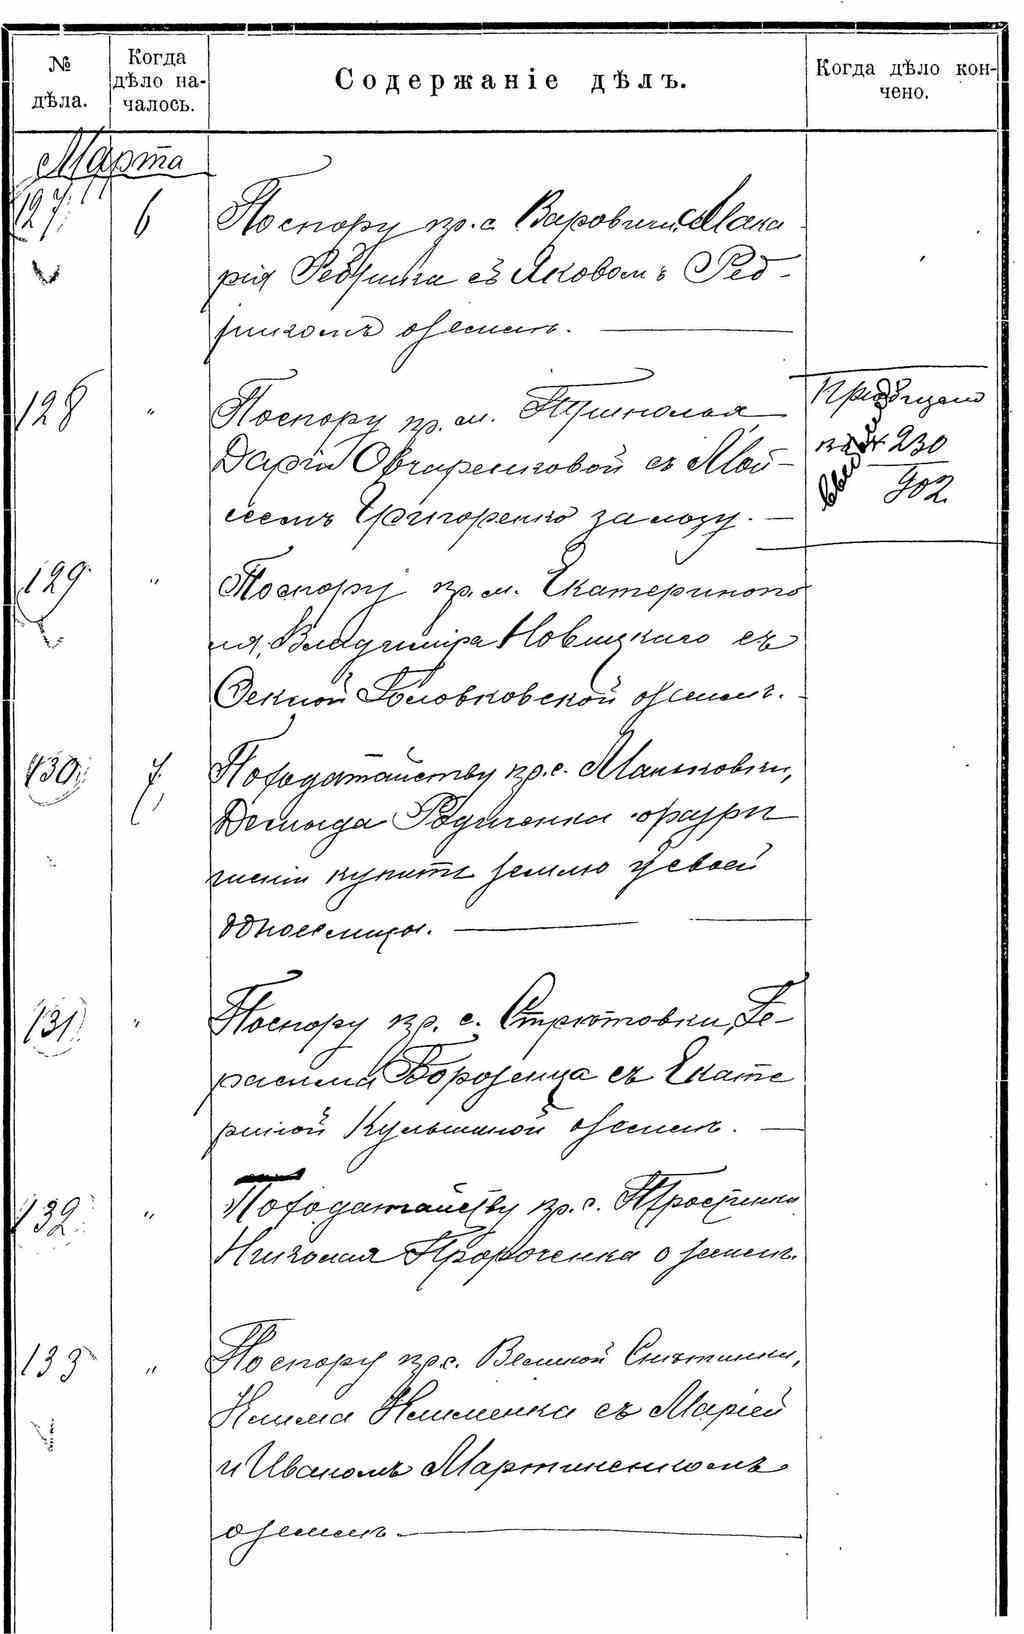 № дѣла.
Когда дѣло на-
чалось.
Содержаніе дѣлъ.
Когда дѣло кон-
чено.
Марта
127. 6 По спору кр. с. Варовичи, Мака
рія Редзика съ Яковомъ Ред-
зикомъ о землѣ.
128 " По спору кр. м. Триполья,
Даріи Овчаренковой съ Мой-
сеемъ Григоренко за лозу.
Пріобщено
къ № 230
902.
129 " По спору кр. м. Екатеринопо
ля, Владиміра Новицкаго съ
Феклой Головковской о землѣ.
130 7, По ходатайству кр. с. Маньковки,
Демида Родченка о разрѣ
шеніи купить землю у своей
односелицы.
131 " По спору кр. с. Стрютовки, Ге-
расима Борозенца съ Екате
риной Кулешиной о землѣ.
132 " По ходатайству кр. с. Тростинки
Николая Пророченка о землѣ.
133 " По спору кр. с. Великой Снѣтинки,
Клима Клименка съ Маріей
и Иваномъ Мартиненкомъ
о землѣ.